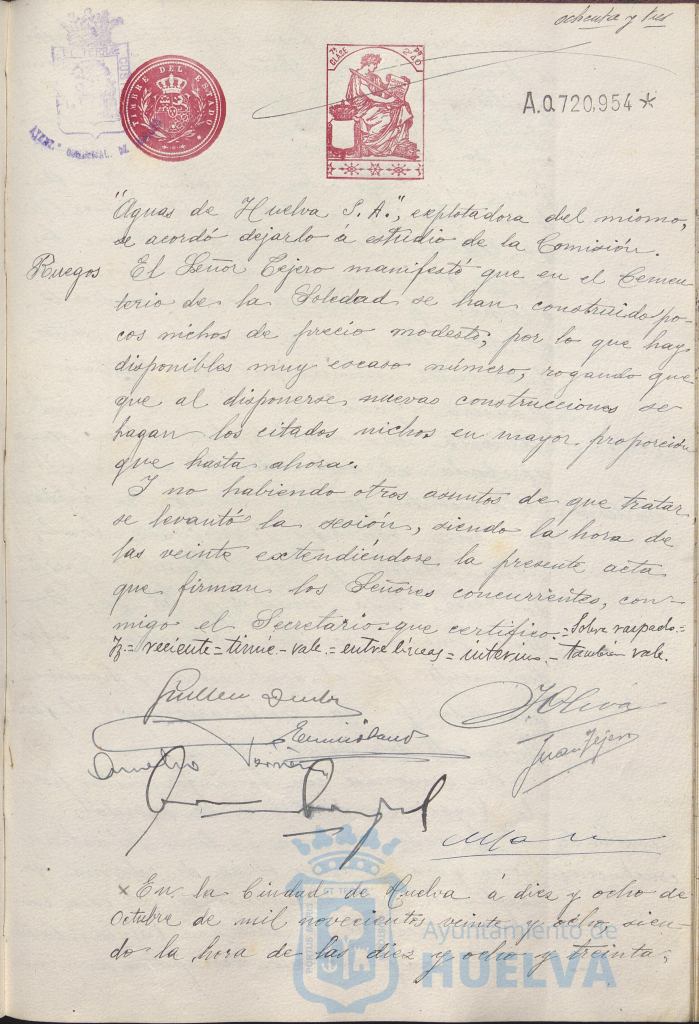 ochenta y tres
TIMBRE DEL ESTADO
7ª CLASE
A.0.720,954 *
"Aguas de Huelva S. A.", explotadora del mismo,
se acordó dejarlo á estudio de la Comisión.
Ruegos El Señor Tejero manifestó que en el Cemen-
terio de la Soledad se han construido po-
cos nichos de precio modesto, por lo que hay
disponibles muy escaso número, rogando que
que al disponerse nuevas construcciones se
hagan los citados nichos en mayor proporción
que hasta ahora.
Y no habiendo otros asuntos de que tratar
se levantó la sesión, siendo la hora de
las veinte extendiéndose la presente acta
que firman los Señores concurrentes, con-
migo el Secretario que certifico.=Sobre raspado=
reciente=timie-vale.=entre líneas=interino.-tambien vale.
J. Oliva
Juan Tejero
En la Ciudad de Huelva á diez y ocho de
Octubre de mil novecientos veinte y ocho, sien-
do la hora de las diez y ocho y treinta,
Ayuntamiento de
HUELVA